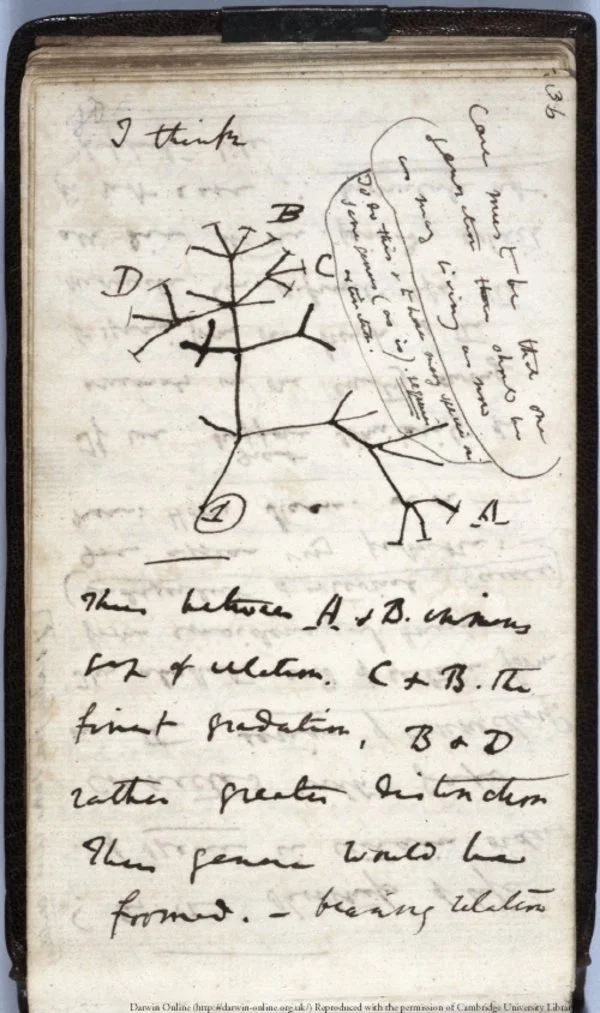 36
I think
Case must be that one
generation then should be
as many living as now
To do this & to have many species in
same genus (as is). requires
extinction.
B
C
D
A
1
Thus between A & B. immense
gap of relation. C & B. the
finest gradation, B & D
rather greater distinction
Thus genera would be
formed. – bearing relation
Darwin Online (http://darwin-online.org.uk/) Reproduced with the permission of Cambridge University Librar